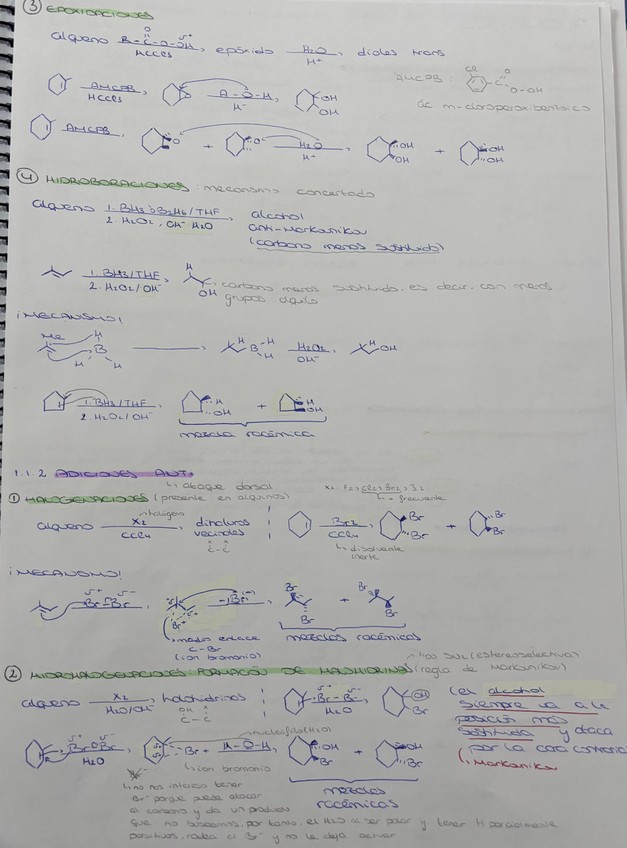 ③ EPOXIDACIONES
alqueno R-C-O-OH, epóxido H2O, dioles trans
O
HCCl3 H+
AMCPB HCCl3 H+ OH OH
AMCPB: Cl O O-OH
ác m-cloroperoxibenzoico
AMCPB O + O H2O H+ OH OH + OH OH
④ HIDROBORACIONES: mecanismo concertado
alqueno 1. BH3 ó B2H6/THF, alcohol
2. H2O2, OH- H2O anti-Markonikov
(carbono menos sustituido)
1. BH3/THF 2. H2O2/OH- H OH carbono menos sustituido, es decir, con menos
grupos alquilo
¡MECANISMO!
Me H B H H H B H H H2O2 OH- H OH
1. BH3/THF 2. H2O2/OH- H OH + H OH
mezcla racémica
1.1.2 ADICIONES ANTI
↳ ataque dorsal
① HALOGENACIONES (presente en alquinos) X2: F2, Cl2, Br2, I2
↳ + frecuente
alqueno X2 CCl4 halógeno dihaluros vecinales C-C
Br2 CCl4 Br Br + Br Br
↳ disolvente inerte
¡MECANISMO!
δ+ δ- Br-Br Br+ -Br- Br Br + Br Br
medio enlace C-Br
(ion bromonio)
mezclas racémicas
② HIDROHALOGENACIONES: FORMACIÓN DE HALOHIDRINAS (regla de Markonikov)
alqueno X2 H2O/OH- halohidrinas OH X C-C
δ+ δ- Br-Br H2O OH Br
(el alcohol
siempre va a la
posición más
sustituida y ataca
por la cara contraria)
(Markonikov
Br-Br H2O Br H-O-H OH Br + OH Br
nucleófilo (H2O)
↳ ion bromonio
mezclas racémicas
↳ no nos interesa tener
Br- porque puede atacar
al carbono y da un producto
que no buscamos, por tanto, el H2O al ser polar y tener H parcialmente
positivos, rodea al Br- y no le deja actuar